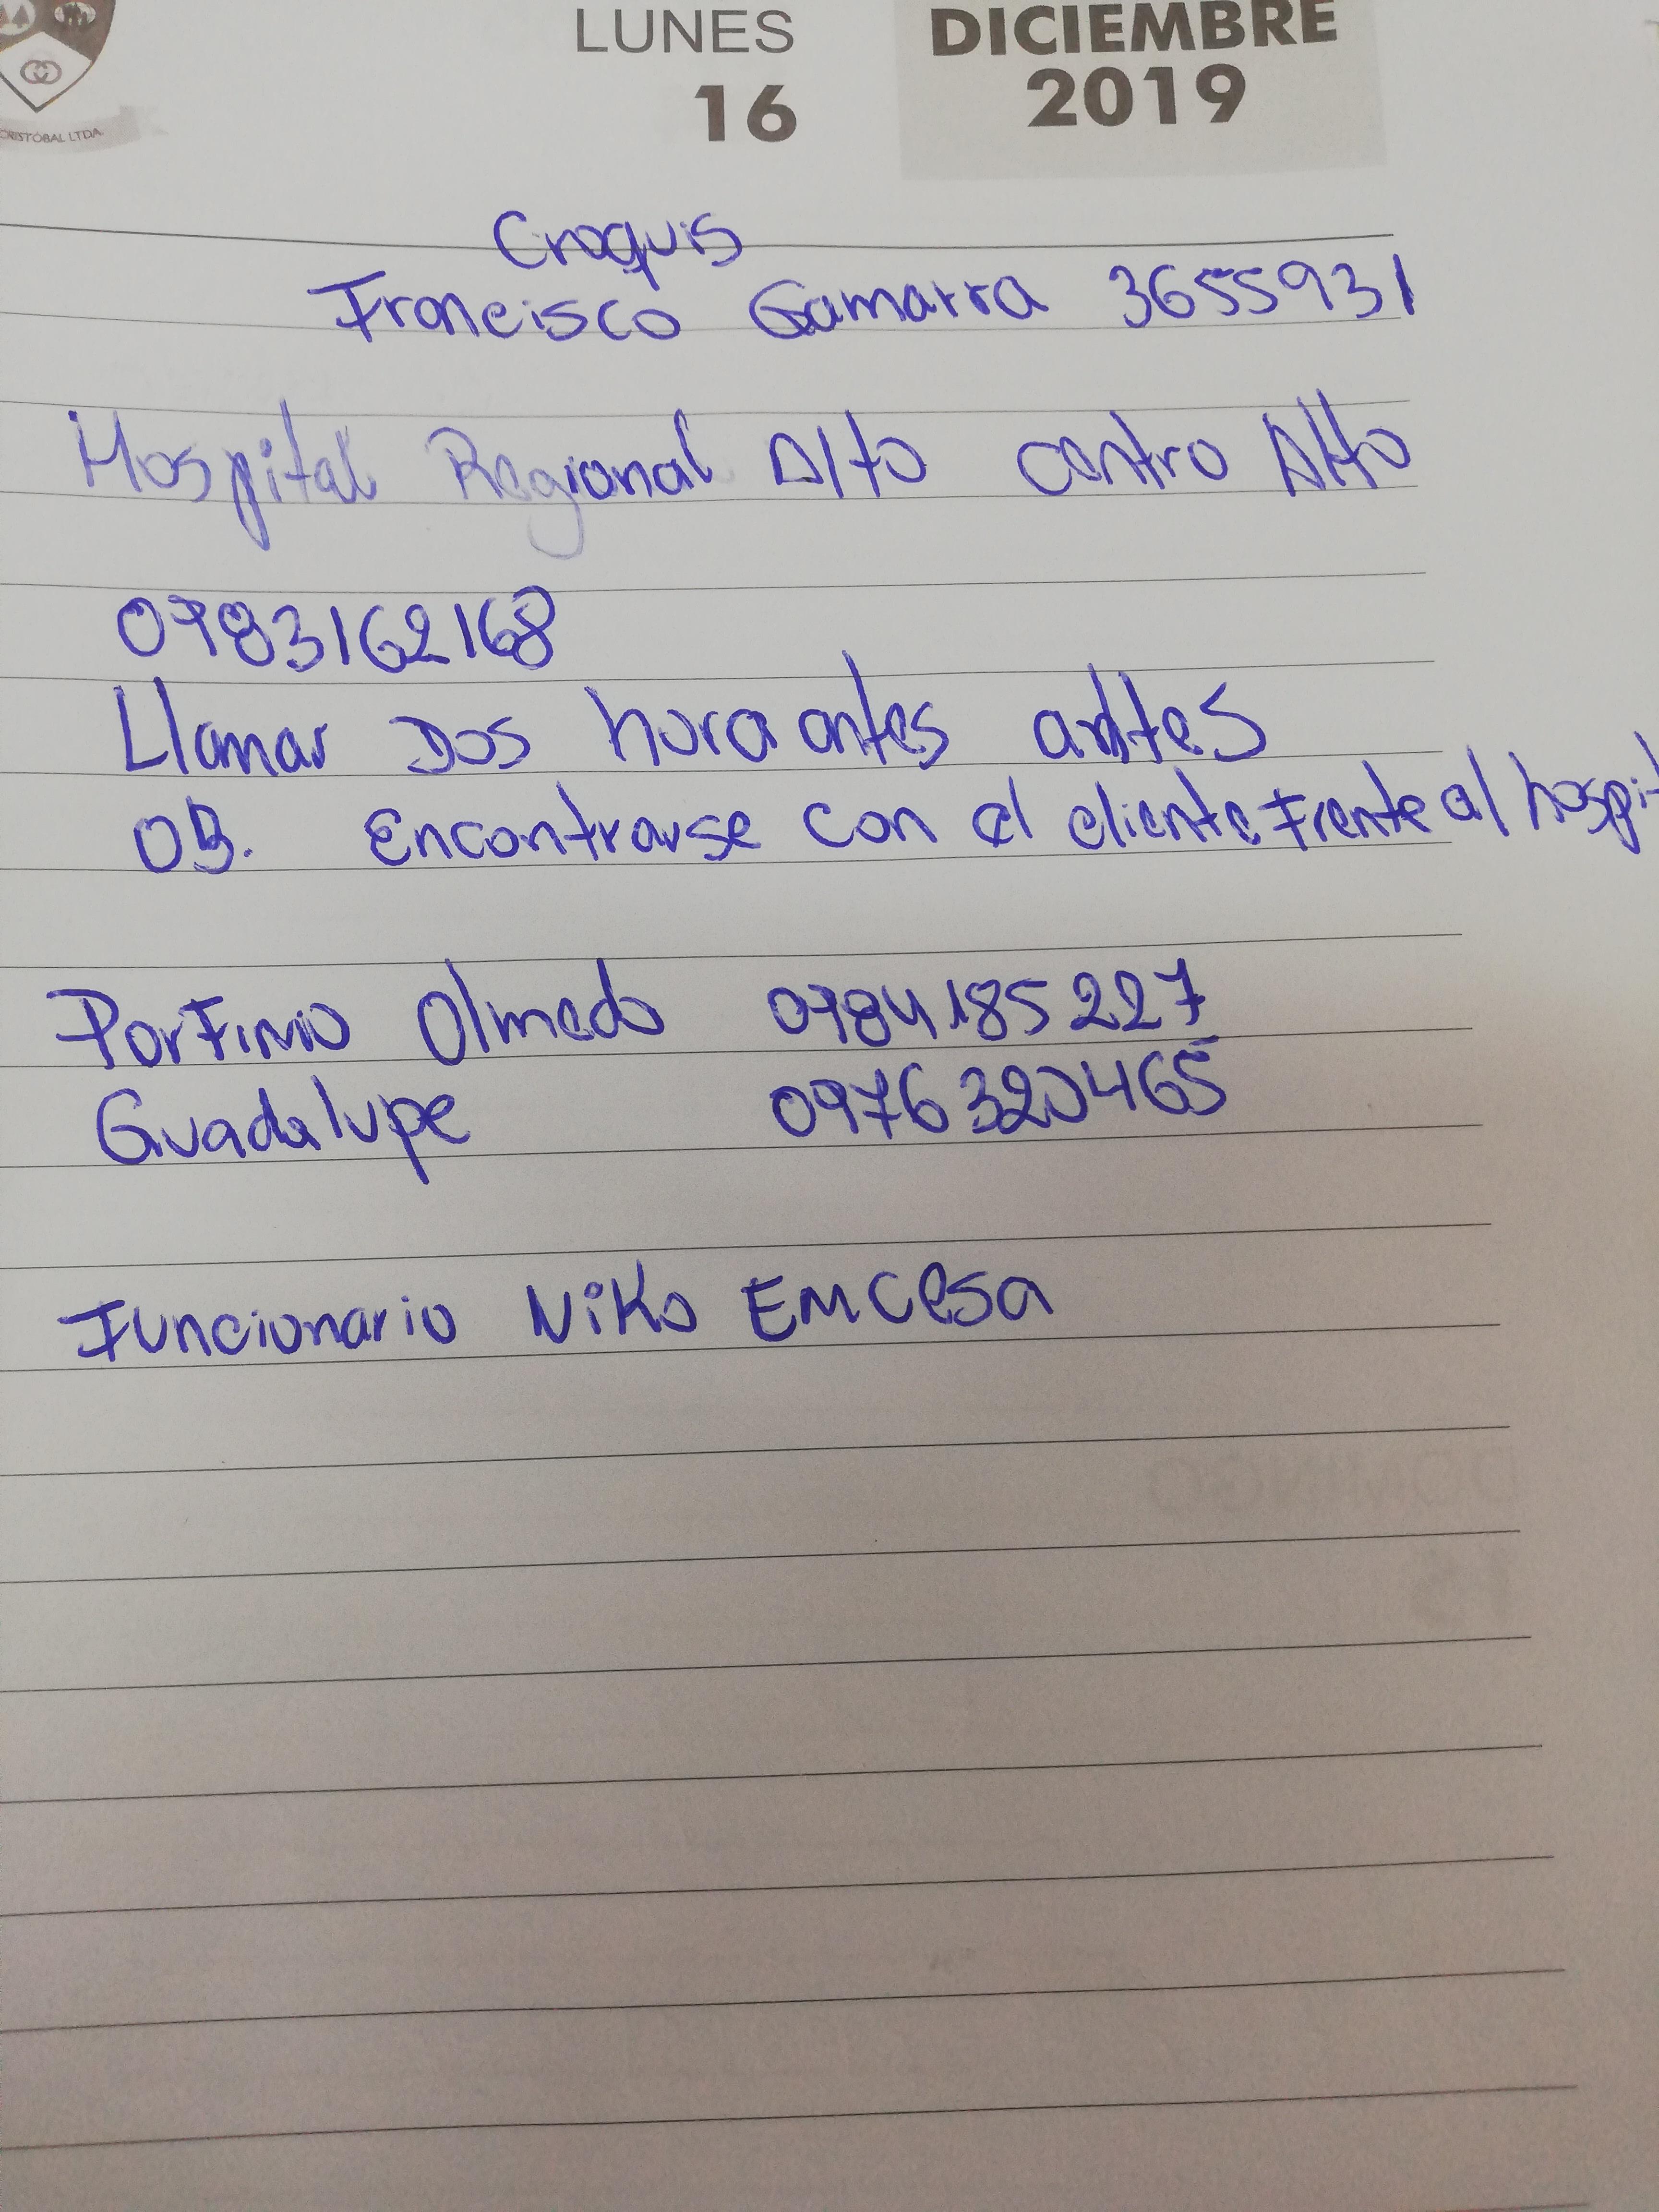 LUNES
16
DICIEMBRE
2019
CRISTÓBAL LTDA.
Croquis
Francisco Gamarra 3655931
Hospital Regional Alto centro Alto
0983162168
Llamar Dos hora antes antes
OB. Encontrarse con el cliente Frente al hospit
Olmedo 0984185227
Guadalupe 0976320465
Funcionario Niko Emcesa
DOMINGO
15